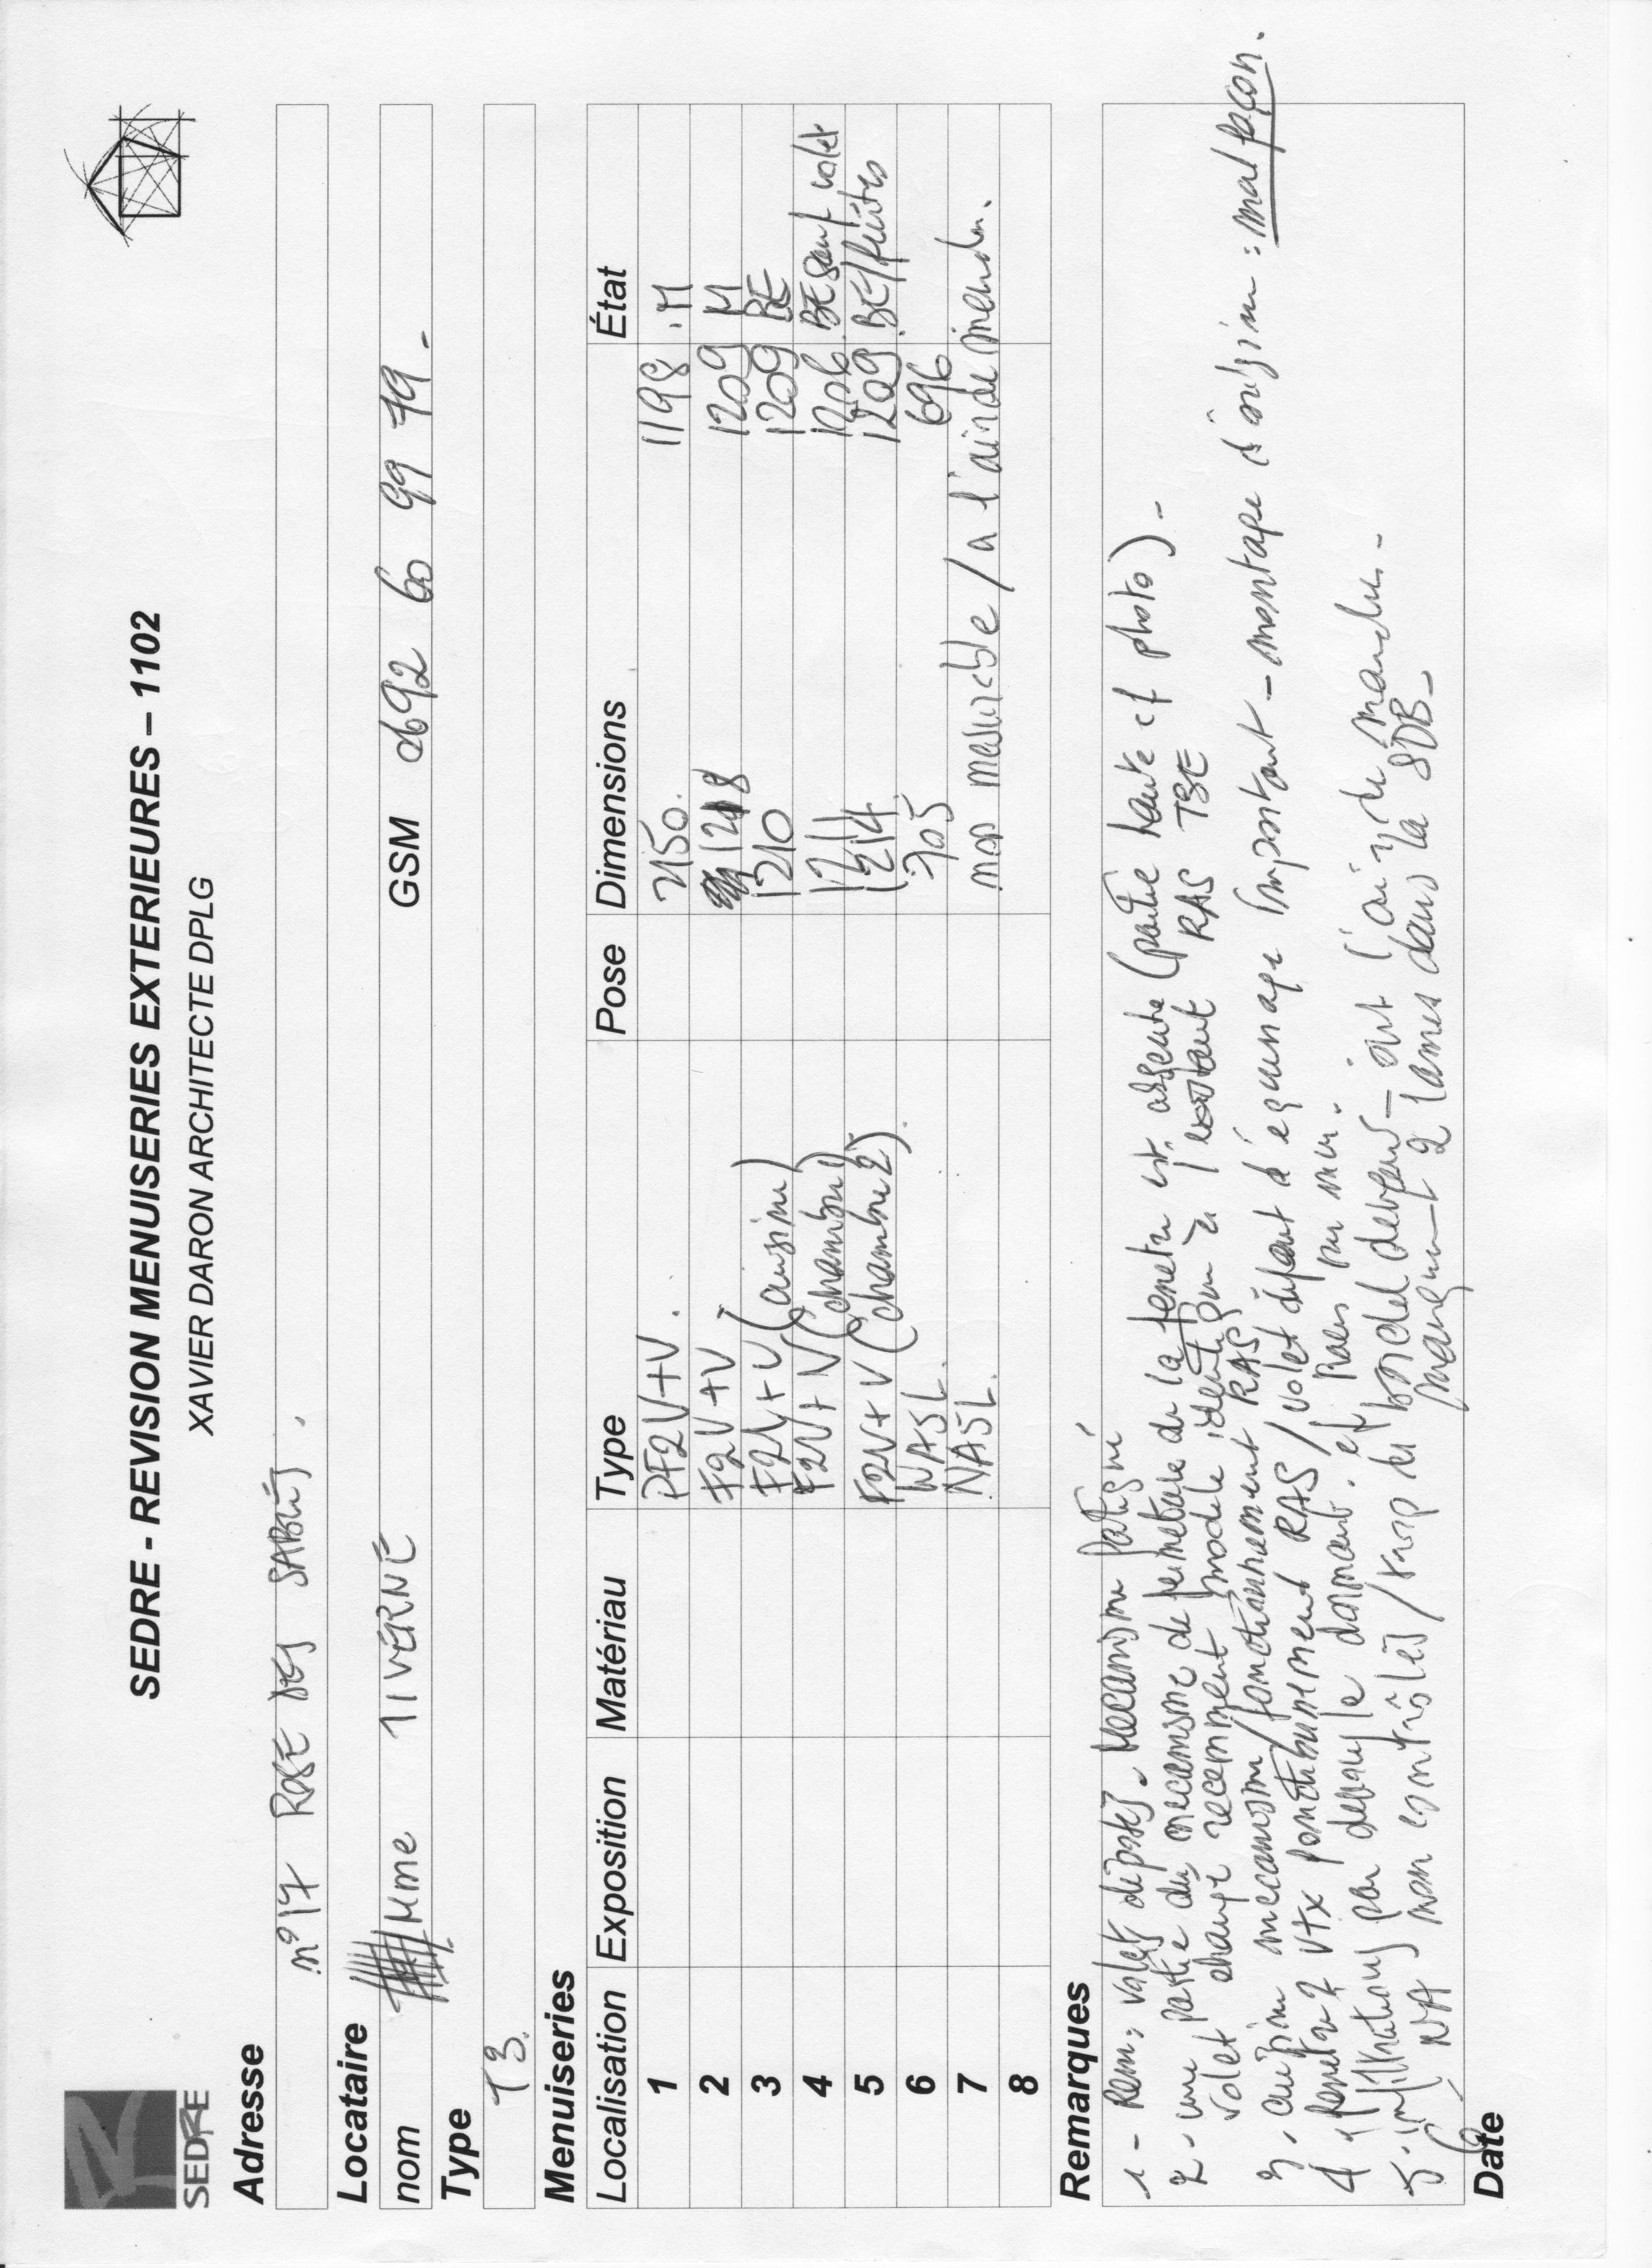 SEDRE
SEDRE - REVISION MENUISERIES EXTERIEURES – 1102
XAVIER DARON ARCHITECTE DPLG
Adresse
n° 17 ROSE DES SABLES
Locataire
nom Mme TIVERNE GSM 0692 60 99 79
Type
T3.
Menuiseries
Localisation Exposition Matériau Type Pose Dimensions État
1 PF2V+V 2150 1198 M
2 F2V+V 1218 1209 M
3 F2V+V (cuisine) 1210 1209 BE
4 F2V+V (chambre) 1211 1206 BE sauf volet
5 F2V+V (chambre 2) 1214 1209 BE/fuites
6 NA5L 705 696
7 NA5L non mesurable / a l'air de mendu.
8
Remarques
1 - Rem. volets déposés. Mecanisme fatigué
2 - une partie du mecanisme de fermeture de la fenetre est absente (partie haute cf photo) -
volet changé recemment modele identique à l'existant RAS TBE
3 - cuisine mecanisme/fonctionnement RAS
4 - fenetre 2 vtx fonctionnement RAS / volet defaut d'équerrage important - montage d'origine : mal façon.
5 - infiltrations par dessus le dormant. et non au mur.
6 - NA non contrôlés / trop de bordel devant - ont l'air de
manque 2 lames dans la SDB -
Date